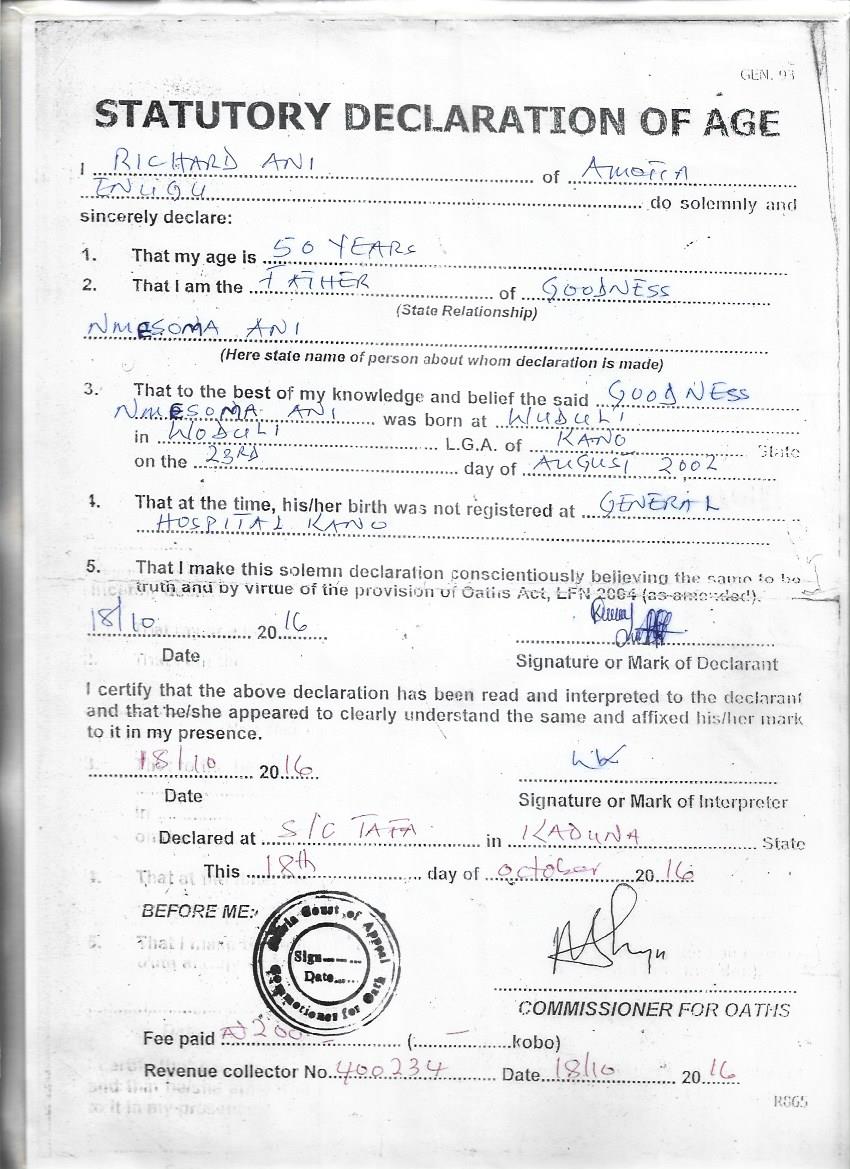 GEN. 93
STATUTORY DECLARATION OF AGE
I RICHARD ANI of
ENUGU do solemnly and
sincerely declare:
1. That my age is 50 YEARS
2. That I am the FATHER of GOODNESS
(State Relationship)
NMESOMA ANI
(Here state name of person about whom declaration is made)
3. That to the best of my knowledge and belief the said GOODNESS
NMESOMA ANI was born at WUDULI
in WODULI L.G.A. of KANO State
on the 23RD day of AUGUST 2002
4. That at the time, his/her birth was not registered at GENERAL
HOSPITAL KANO
5. That I make this solemn declaration conscientiously believing the same to be
truth and by virtue of the provision of Oaths Act, LFN 2004 (as amended).
18/10 2016
Date
Signature or Mark of Declarant
I certify that the above declaration has been read and interpreted to the declarant
and that he/she appeared to clearly understand the same and affixed his/her mark
to it in my presence.
18/10 2016
Date
Signature or Mark of Interpreter
Declared at S/C TAFA in KADUNA State
This 18th day of October 2016
BEFORE ME:
Court of Appeal
Sign
Date
for Oath
COMMISSIONER FOR OATHS
Fee paid ₦200 (– kobo)
Revenue collector No. 400234 Date 18/10 2016
R865